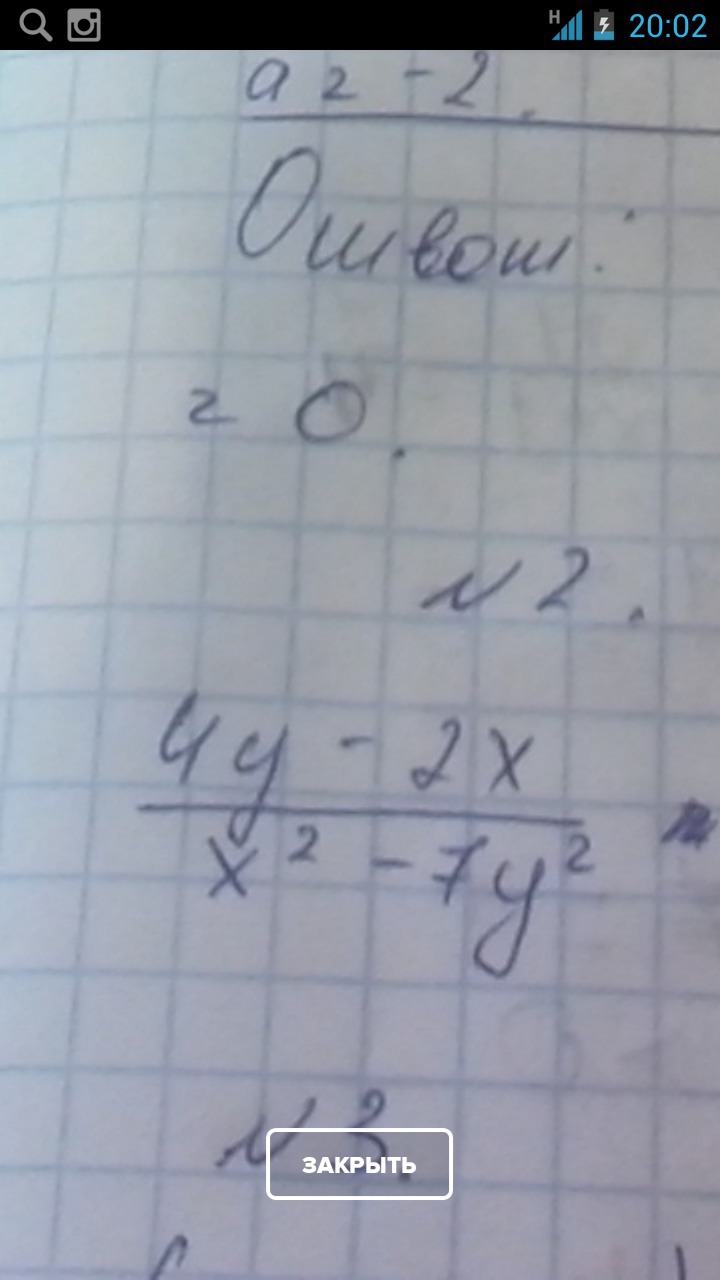 H 20:02
a = -2.
Ответ:
= 0.
N 2.
4y - 2x
x² - 7y²
N 3.
ЗАКРЫТЬ